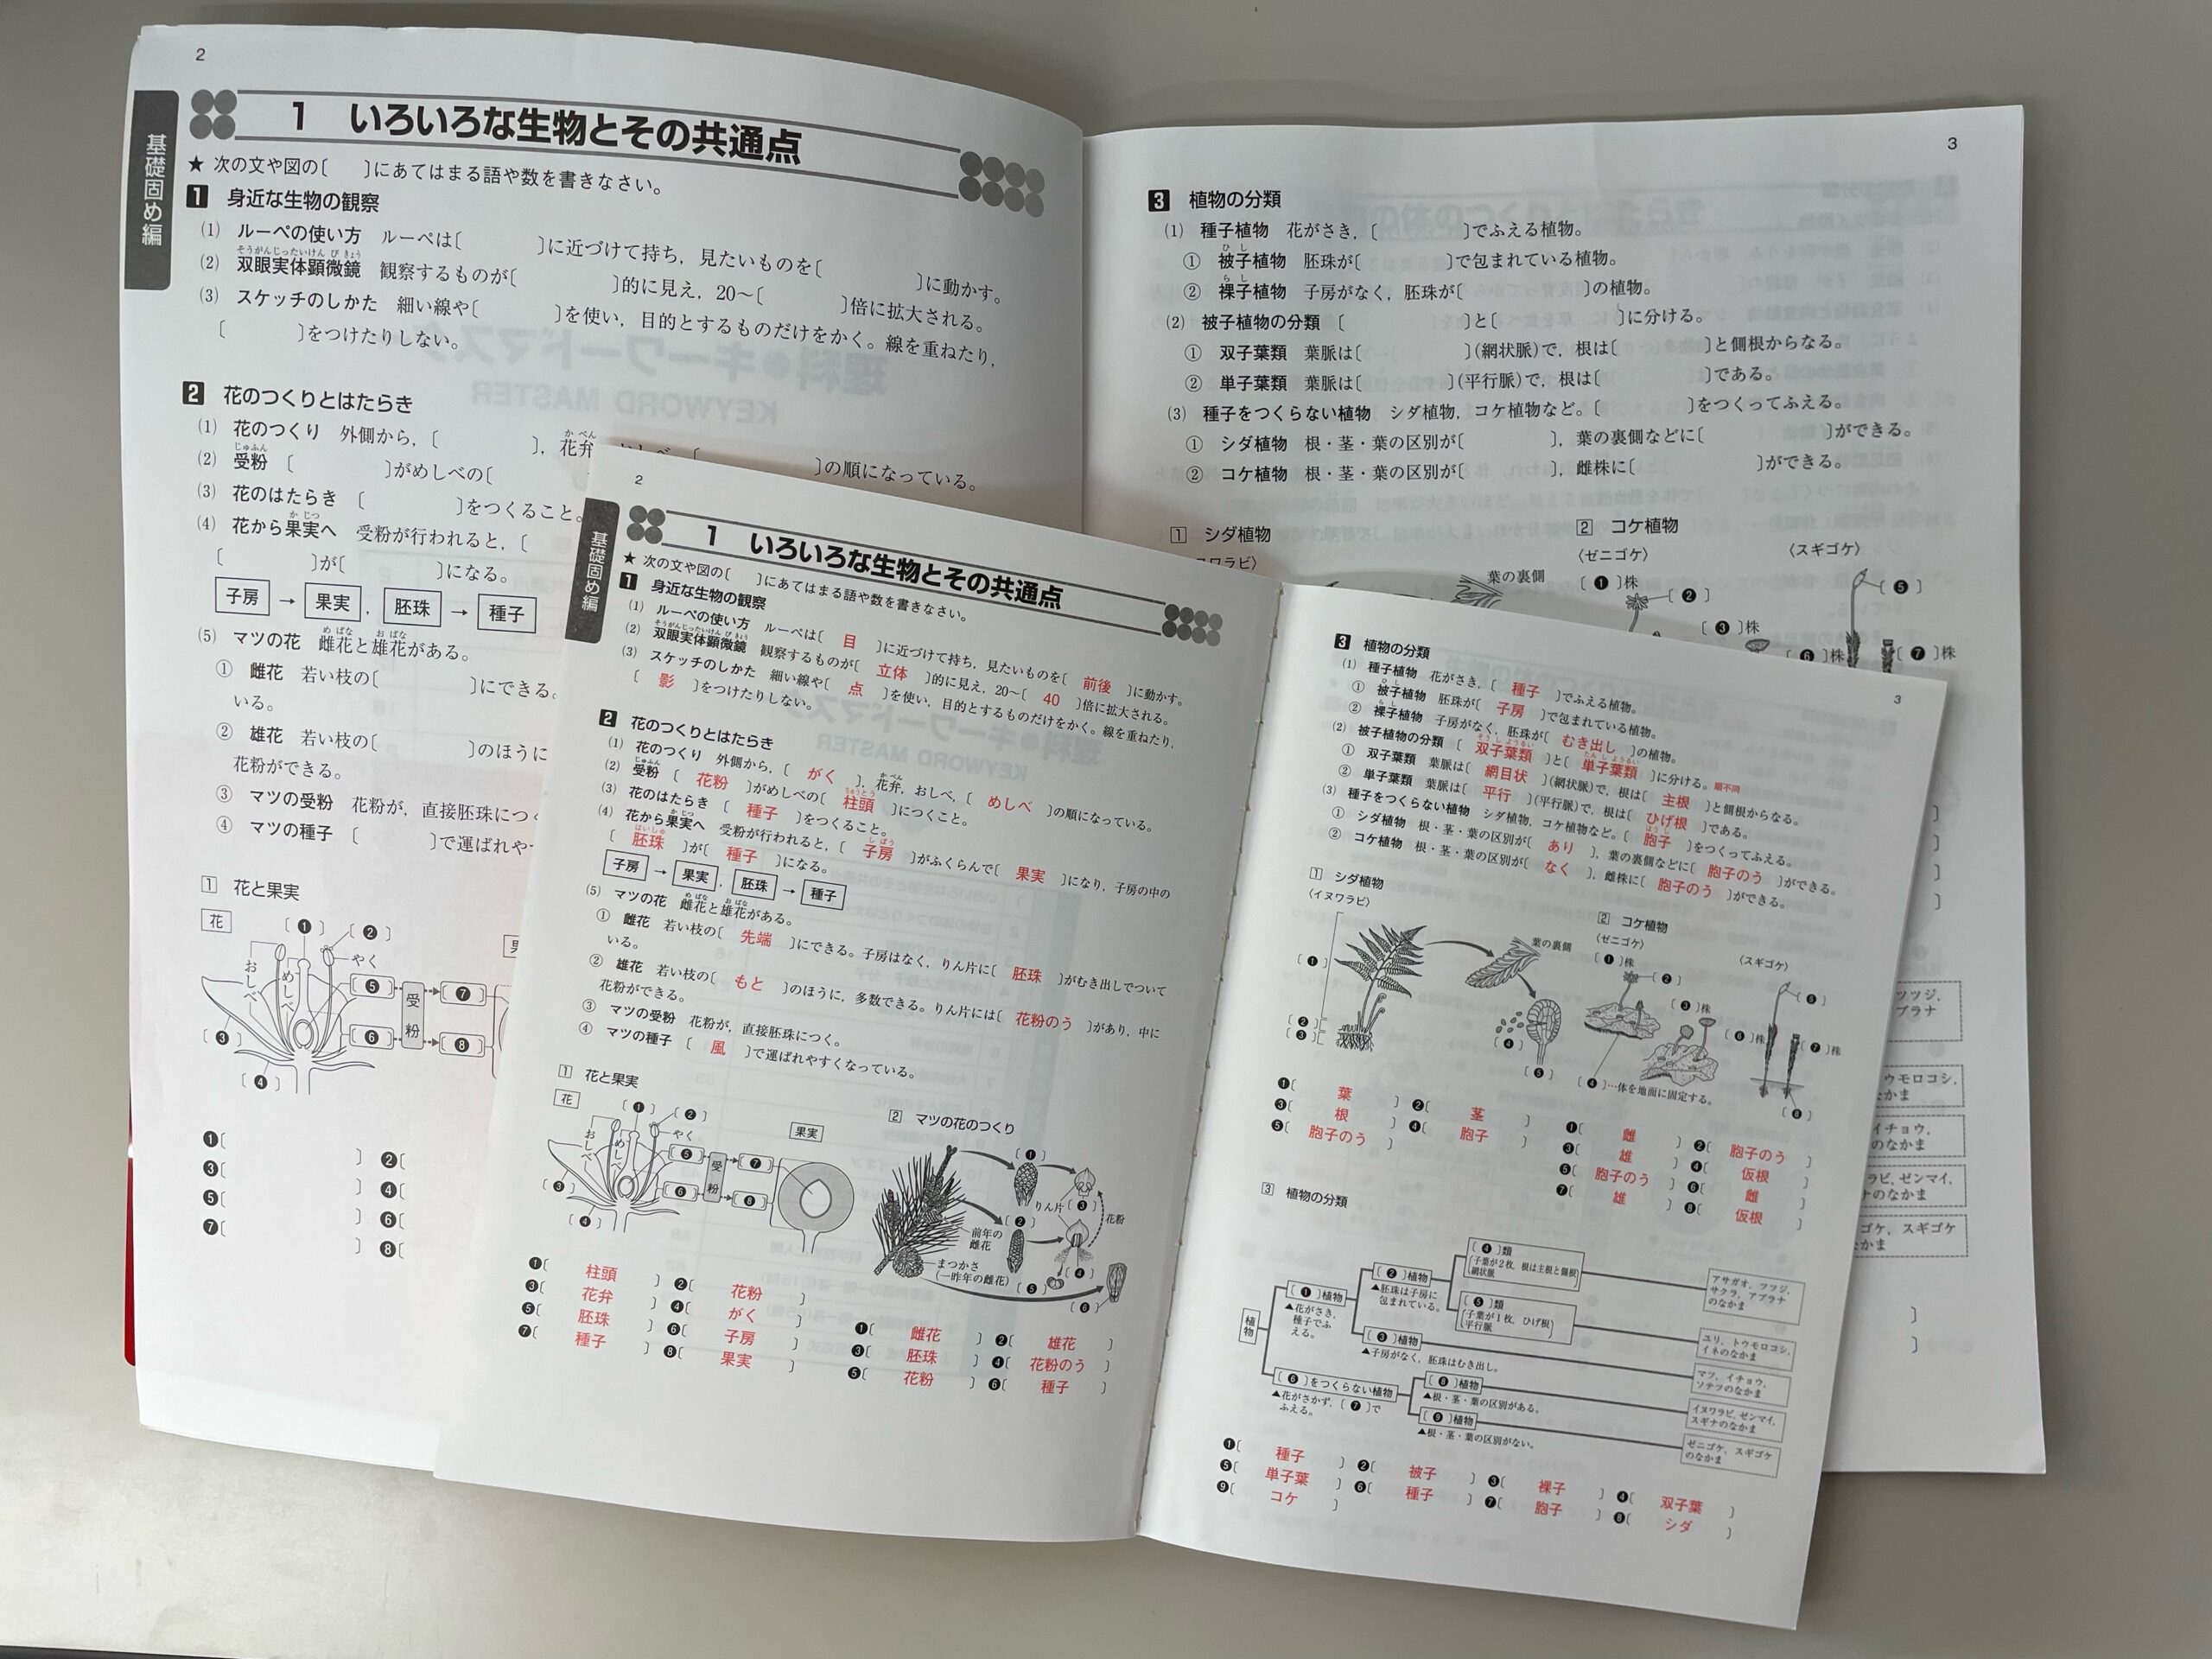 2
基礎固め編
1 いろいろな生物とその共通点
★ 次の文や図の〔 〕にあてはまる語や数を書きなさい。
1 身近な生物の観察
(1) ルーペの使い方 ルーペは〔 〕に近づけて持ち，見たいものを〔 〕に動かす。
そうがんじったいけん び きょう
(2) 双眼実体顕微鏡 観察するものが〔 〕的に見え，20〜〔 〕倍に拡大される。
(3) スケッチのしかた 細い線や〔 〕を使い，目的とするものだけをかく。線を重ねたり，
〔 〕をつけたりしない。
2 花のつくりとはたらき
(1) 花のつくり 外側から，〔 〕，花弁
か べん
〔 〕の順になっている。
じゅふん
(2) 受粉 〔 〕がめしべの〔
(3) 花のはたらき 〔 〕をつくること。
か じつ
(4) 花から果実へ 受粉が行われると，〔
〔 〕が〔 〕になる。
子房 → 果実 ， 胚珠 → 種子
め ばな お ばな
(5) マツの花 雌花と雄花がある。
① 雌花 若い枝の〔 〕にできる。
いる。
② 雄花 若い枝の〔 〕のほうに
花粉ができる。
③ マツの受粉 花粉が，直接胚珠につ
④ マツの種子 〔 〕で運ばれや
1 花と果実
花
〔❶〕 〔❷〕
やく
おしべ
めしべ
〔❸〕
〔❹〕
❺ ❼
受粉
❻ ❽
❶〔 〕 ❷〔
❸〔 〕 ❹〔
❺〔 〕 ❻〔
❼〔 〕 ❽〔
3
3 植物の分類
(1) 種子植物 花がさき，〔 〕でふえる植物。
ひ し
① 被子植物 胚珠が〔 〕で包まれている植物。
ら し
② 裸子植物 子房がなく，胚珠が〔 〕の植物。
(2) 被子植物の分類 〔 〕と〔 〕に分ける。
① 双子葉類 葉脈は〔 〕(網状脈)で，根は〔 〕と側根からなる。
② 単子葉類 葉脈は〔 〕(平行脈)で，根は〔 〕である。
(3) 種子をつくらない植物 シダ植物，コケ植物など。〔 〕をつくってふえる。
① シダ植物 根・茎・葉の区別が〔 〕，葉の裏側などに〔 〕ができる。
② コケ植物 根・茎・葉の区別が〔 〕，雌株に〔 〕ができる。
1 シダ植物
ワラビ〉
葉の裏側
2 コケ植物
〈ゼニゴケ〉 〈スギゴケ〉
〔❶〕株
〔❷〕
〔❸〕株
〔❺〕
〔❻〕株
〔❼〕株
ツツジ，
ブラナ
ウモロコシ，
なかま
イチョウ，
のなかま
ラビ，ゼンマイ，
ナのなかま
ゴケ，スギゴケ
かま
2
基礎固め編
1 いろいろな生物とその共通点
★ 次の文や図の〔 〕にあてはまる語や数を書きなさい。
1 身近な生物の観察
(1) ルーペの使い方 ルーペは〔 目 〕に近づけて持ち，見たいものを〔 前後 〕に動かす。
そうがんじったいけん び きょう
(2) 双眼実体顕微鏡 観察するものが〔 立体 〕的に見え，20〜〔 40 〕倍に拡大される。
(3) スケッチのしかた 細い線や〔 点 〕を使い，目的とするものだけをかく。線を重ねたり，
〔 影 〕をつけたりしない。
2 花のつくりとはたらき
か べん
(1) 花のつくり 外側から，〔 がく 〕，花弁，おしべ，〔 めしべ 〕の順になっている。
じゅふん ちゅうとう
(2) 受粉 〔 花粉 〕がめしべの〔 柱頭 〕につくこと。
(3) 花のはたらき 〔 種子 〕をつくること。
か じつ し ぼう
(4) 花から果実へ 受粉が行われると，〔 子房 〕がふくらんで〔 果実 〕になり，子房の中の
はいしゅ
〔 胚珠 〕が〔 種子 〕になる。
子房 → 果実 ， 胚珠 → 種子
め ばな お ばな
(5) マツの花 雌花と雄花がある。
① 雌花 若い枝の〔 先端 〕にできる。子房はなく，りん片に〔 胚珠 〕がむき出しでついて
いる。
② 雄花 若い枝の〔 もと 〕のほうに，多数できる。りん片には〔 花粉のう 〕があり，中に
花粉ができる。
③ マツの受粉 花粉が，直接胚珠につく。
④ マツの種子 〔 風 〕で運ばれやすくなっている。
1 花と果実
花
〔❶〕 〔❷〕
やく
おしべ
めしべ
〔❸〕
〔❹〕
❺ ❼
受粉
❻ ❽
果実
2 マツの花のつくり
〔❶〕
りん片
〔❸〕
〔❷〕
花粉
前年の
雌花
まつかさ
(一昨年の雌花)
〔❹〕
〔❺〕
〔❻〕
❶〔 柱頭 〕 ❷〔 花粉 〕
❸〔 花弁 〕 ❹〔 がく 〕
❺〔 胚珠 〕 ❻〔 子房 〕
❼〔 種子 〕 ❽〔 果実 〕
❶〔 雌花 〕 ❷〔 雄花 〕
❸〔 胚珠 〕 ❹〔 花粉のう 〕
❺〔 花粉 〕 ❻〔 種子 〕
3
3 植物の分類
(1) 種子植物 花がさき，〔 種子 〕でふえる植物。
ひ し
① 被子植物 胚珠が〔 子房 〕で包まれている植物。
ら し
② 裸子植物 子房がなく，胚珠が〔 むき出し 〕の植物。
そう し ようるい たん し ようるい
(2) 被子植物の分類 〔 双子葉類 〕と〔 単子葉類 〕に分ける。順不同
① 双子葉類 葉脈は〔 網目状 〕(網状脈)で，根は〔 主根 〕と側根からなる。
② 単子葉類 葉脈は〔 平行 〕(平行脈)で，根は〔 ひげ根 〕である。
ほう し
(3) 種子をつくらない植物 シダ植物，コケ植物など。〔 胞子 〕をつくってふえる。
① シダ植物 根・茎・葉の区別が〔 あり 〕，葉の裏側などに〔 胞子のう 〕ができる。
② コケ植物 根・茎・葉の区別が〔 なく 〕，雌株に〔 胞子のう 〕ができる。
1 シダ植物
〈イヌワラビ〉
葉の裏側
〔❶〕
〔❷〕
〔❸〕
〔❹〕
〔❺〕
2 コケ植物
〈ゼニゴケ〉 〈スギゴケ〉
〔❶〕株
〔❷〕
〔❸〕株
〔❹〕…体を地面に固定する。
〔❺〕
〔❻〕株
〔❼〕株
〔❽〕
❶〔 葉 〕 ❷〔 茎 〕
❸〔 根 〕 ❹〔 胞子 〕
❺〔 胞子のう 〕
❶〔 雌 〕 ❷〔 胞子のう 〕
❸〔 雄 〕 ❹〔 仮根 〕
❺〔 胞子のう 〕 ❻〔 雌 〕
❼〔 雄 〕 ❽〔 仮根 〕
3 植物の分類
植物
〔❶〕植物
▲花がさき，
種子でふ
える。
〔❷〕植物
▲胚珠は子房に
包まれている。
〔❹〕類
子葉が2枚，根は主根と側根
網状脈
アサガオ，ツツジ，
サクラ，アブラナ
のなかま
〔❺〕類
子葉が1枚，ひげ根
平行脈
ユリ，トウモロコシ，
イネのなかま
〔❸〕植物
▲子房がなく，胚珠はむき出し。
マツ，イチョウ，
ソテツのなかま
〔❻〕をつくらない植物
▲花がさかず，〔❼〕で
ふえる。
〔❽〕植物
▲根・茎・葉の区別がある。
イヌワラビ，ゼンマイ，
スギナのなかま
〔❾〕植物
▲根・茎・葉の区別がない。
ゼニゴケ，スギゴケ
のなかま
❶〔 種子 〕 ❷〔 被子 〕 ❸〔 裸子 〕 ❹〔 双子葉 〕
❺〔 単子葉 〕 ❻〔 種子 〕 ❼〔 胞子 〕 ❽〔 シダ 〕
❾〔 コケ 〕